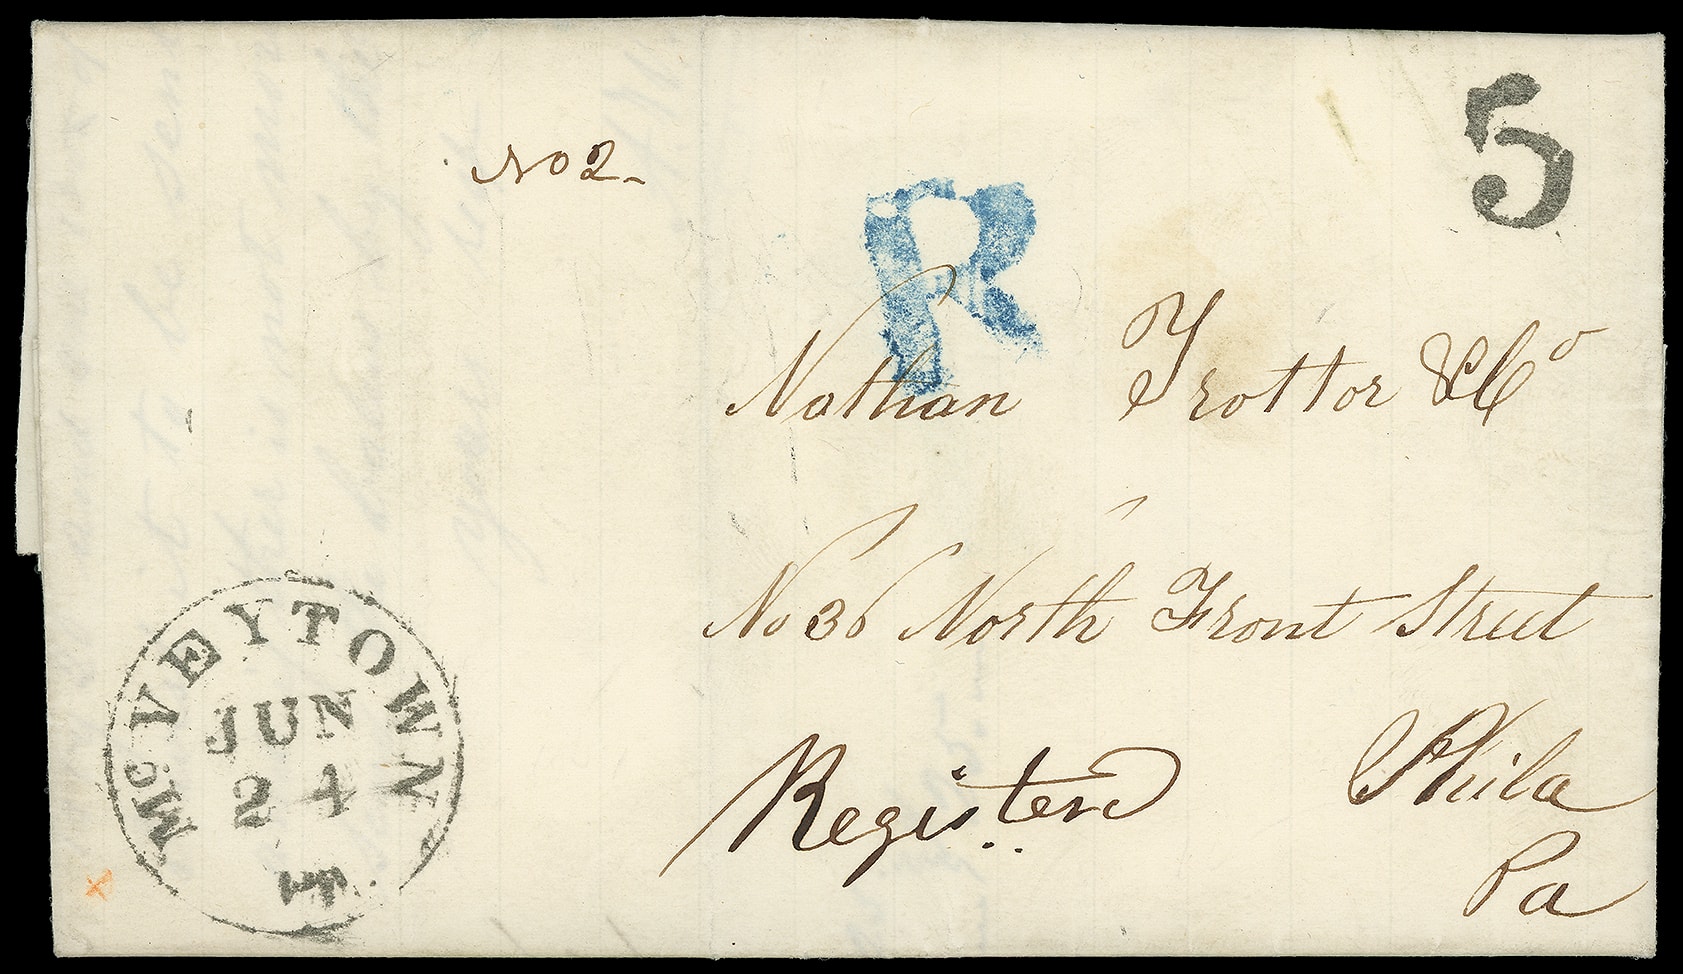 5
No 2
R
Nathan Trotter & Co
No 36 North Front Street
Phila
Pa
Registerd
McVEYTOWN
JUN
24